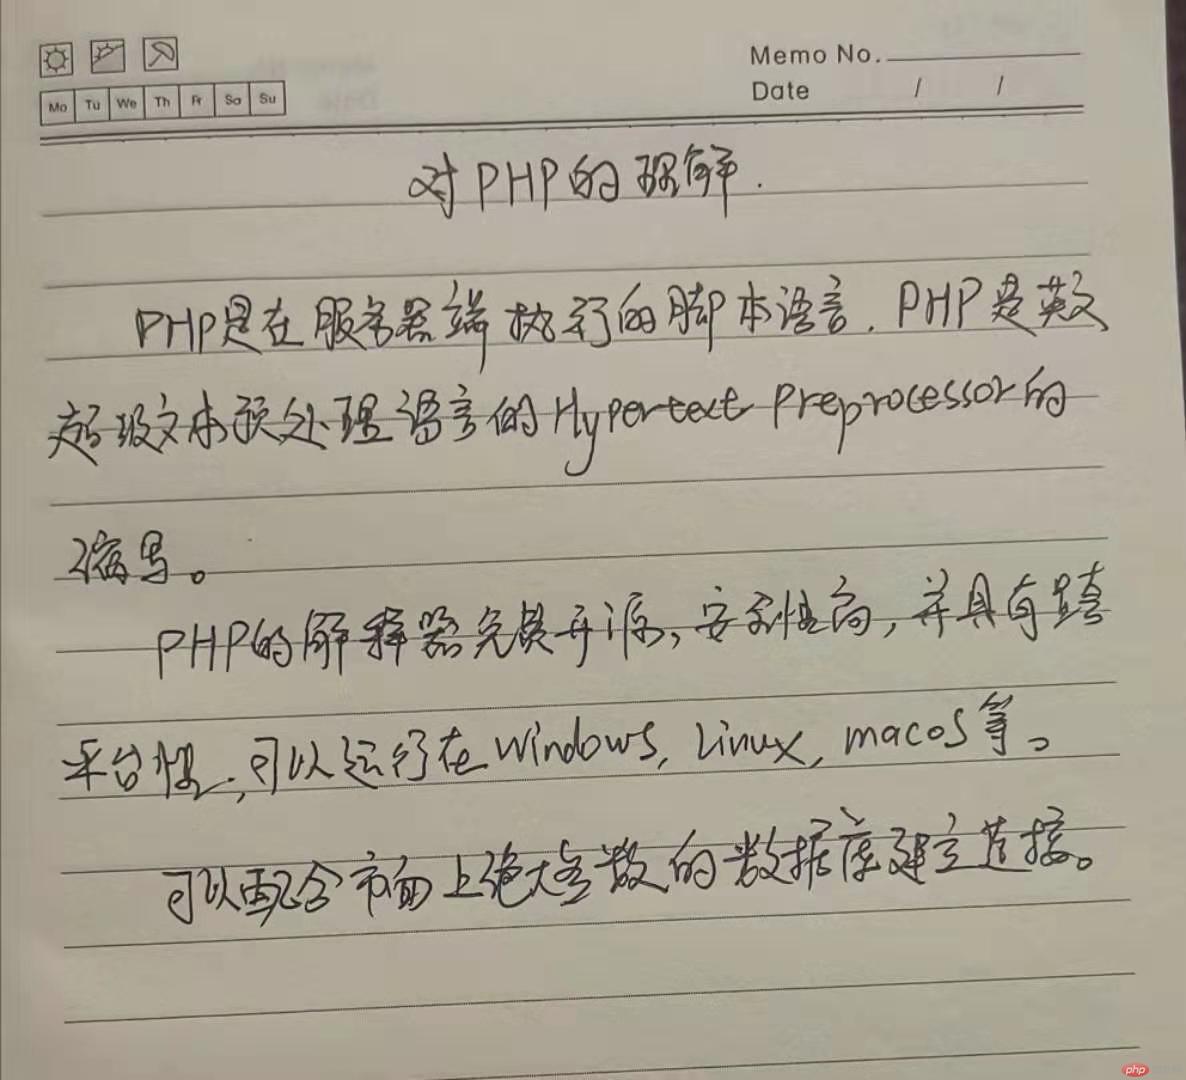 Memo No.
Mo Tu We Th Fr Sa Su
Date / /
对PHP的理解.
PHP是在服务器端执行的脚本语言. PHP是英文
超级文本预处理语言的Hypertect Preprocessor的
缩写。
PHP的解释器免费开源,安全性高,并具有跨
平台性,可以运行在windows, Linux, macos等。
可以配合市面上绝大多数的数据库建立连接。
php